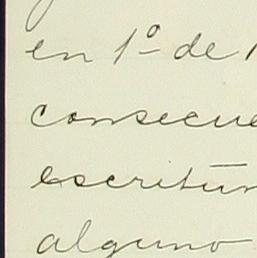 en 1º de
consecue
escritur
alguno